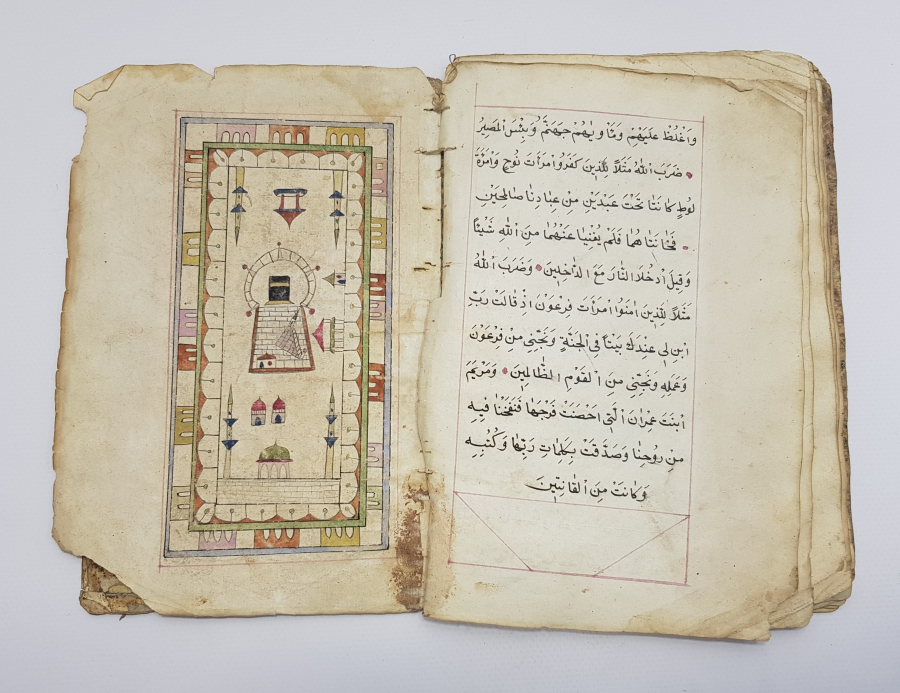 وَاغْلُظْ عَلَيْهِمْ وَمَأْوٰيهُمْ جَهَنَّمُ وَبِئْسَ الْمَصِيرُ
ضَرَبَ اللهُ مَثَلًا لِلَّذِينَ كَفَرُوا امْرَأَتَ نُوحٍ وَامْرَأَةَ
لُوطٍ كَانَتَا تَحْتَ عَبْدَيْنِ مِنْ عِبَادِنَا صَالِحَيْنِ
فَخَانَتَاهُمَا فَلَمْ يُغْنِيَا عَنْهُمَا مِنَ اللهِ شَيْئًا
وَقِيلَ ادْخُلَا النَّارَ مَعَ الدَّاخِلِينَ وَضَرَبَ اللهُ
مَثَلًا لِلَّذِينَ اٰمَنُوا امْرَأَتَ فِرْعَوْنَ اِذْ قَالَتْ رَبِّ
ابْنِ لِي عِنْدَكَ بَيْتًا فِي الْجَنَّةِ وَنَجِّنِي مِنْ فِرْعَوْنَ
وَعَمَلِهِ وَنَجِّنِي مِنَ الْقَوْمِ الظَّالِمِينَ وَمَرْيَمَ
ابْنَتَ عِمْرَانَ الَّتِي اَحْصَنَتْ فَرْجَهَا فَنَفَخْنَا فِيهِ
مِنْ رُوحِنَا وَصَدَّقَتْ بِكَلِمَاتِ رَبِّهَا وَكُتُبِهِ
وَكَانَتْ مِنَ الْقَانِتِينَ